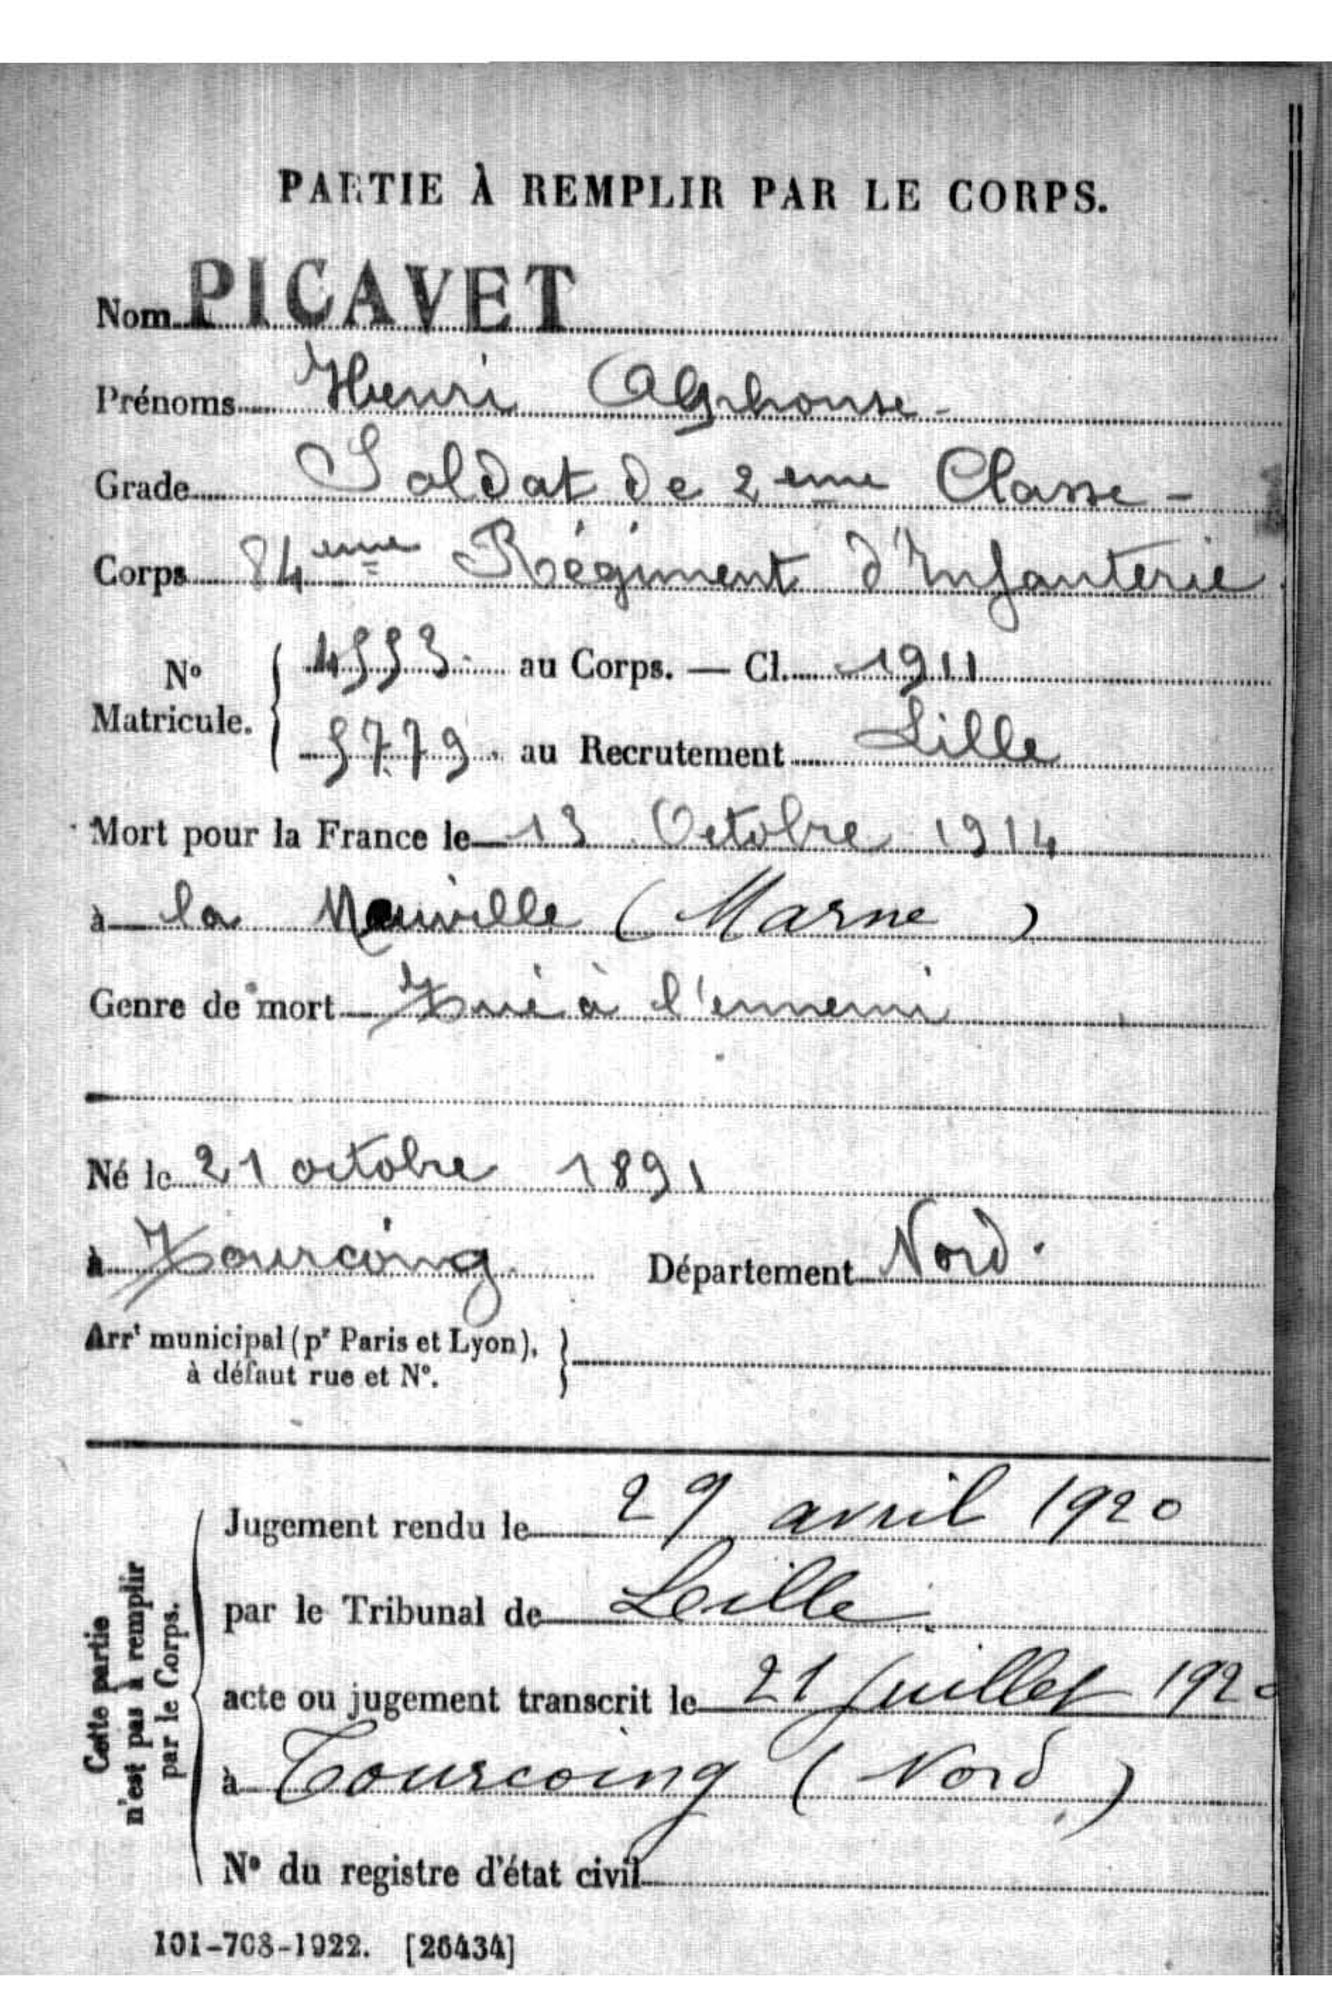 PARTIE À REMPLIR PAR LE CORPS.
Nom PICAVET
Prénoms Henri Alphonse -
Grade Soldat de 2 eme Classe -
Corps 84 eme Régiment d'Infanterie
N° Matricule. { 4553. au Corps. — Cl. 1911
5779. au Recrutement Lille
Mort pour la France le 13 Octobre 1914
à la Neuville (Marne)
Genre de mort Tué à l'ennemi
Né le 21 octobre 1891
à Tourcoing Département Nord.
Arrt municipal (pr Paris et Lyon),
à défaut rue et N°.
Cette partie
n'est pas à remplir
par le Corps.
Jugement rendu le 29 avril 1920
par le Tribunal de Lille
acte ou jugement transcrit le 21 juillet 1920
à Tourcoing (Nord)
N° du registre d'état civil
101-708-1922. [26434]